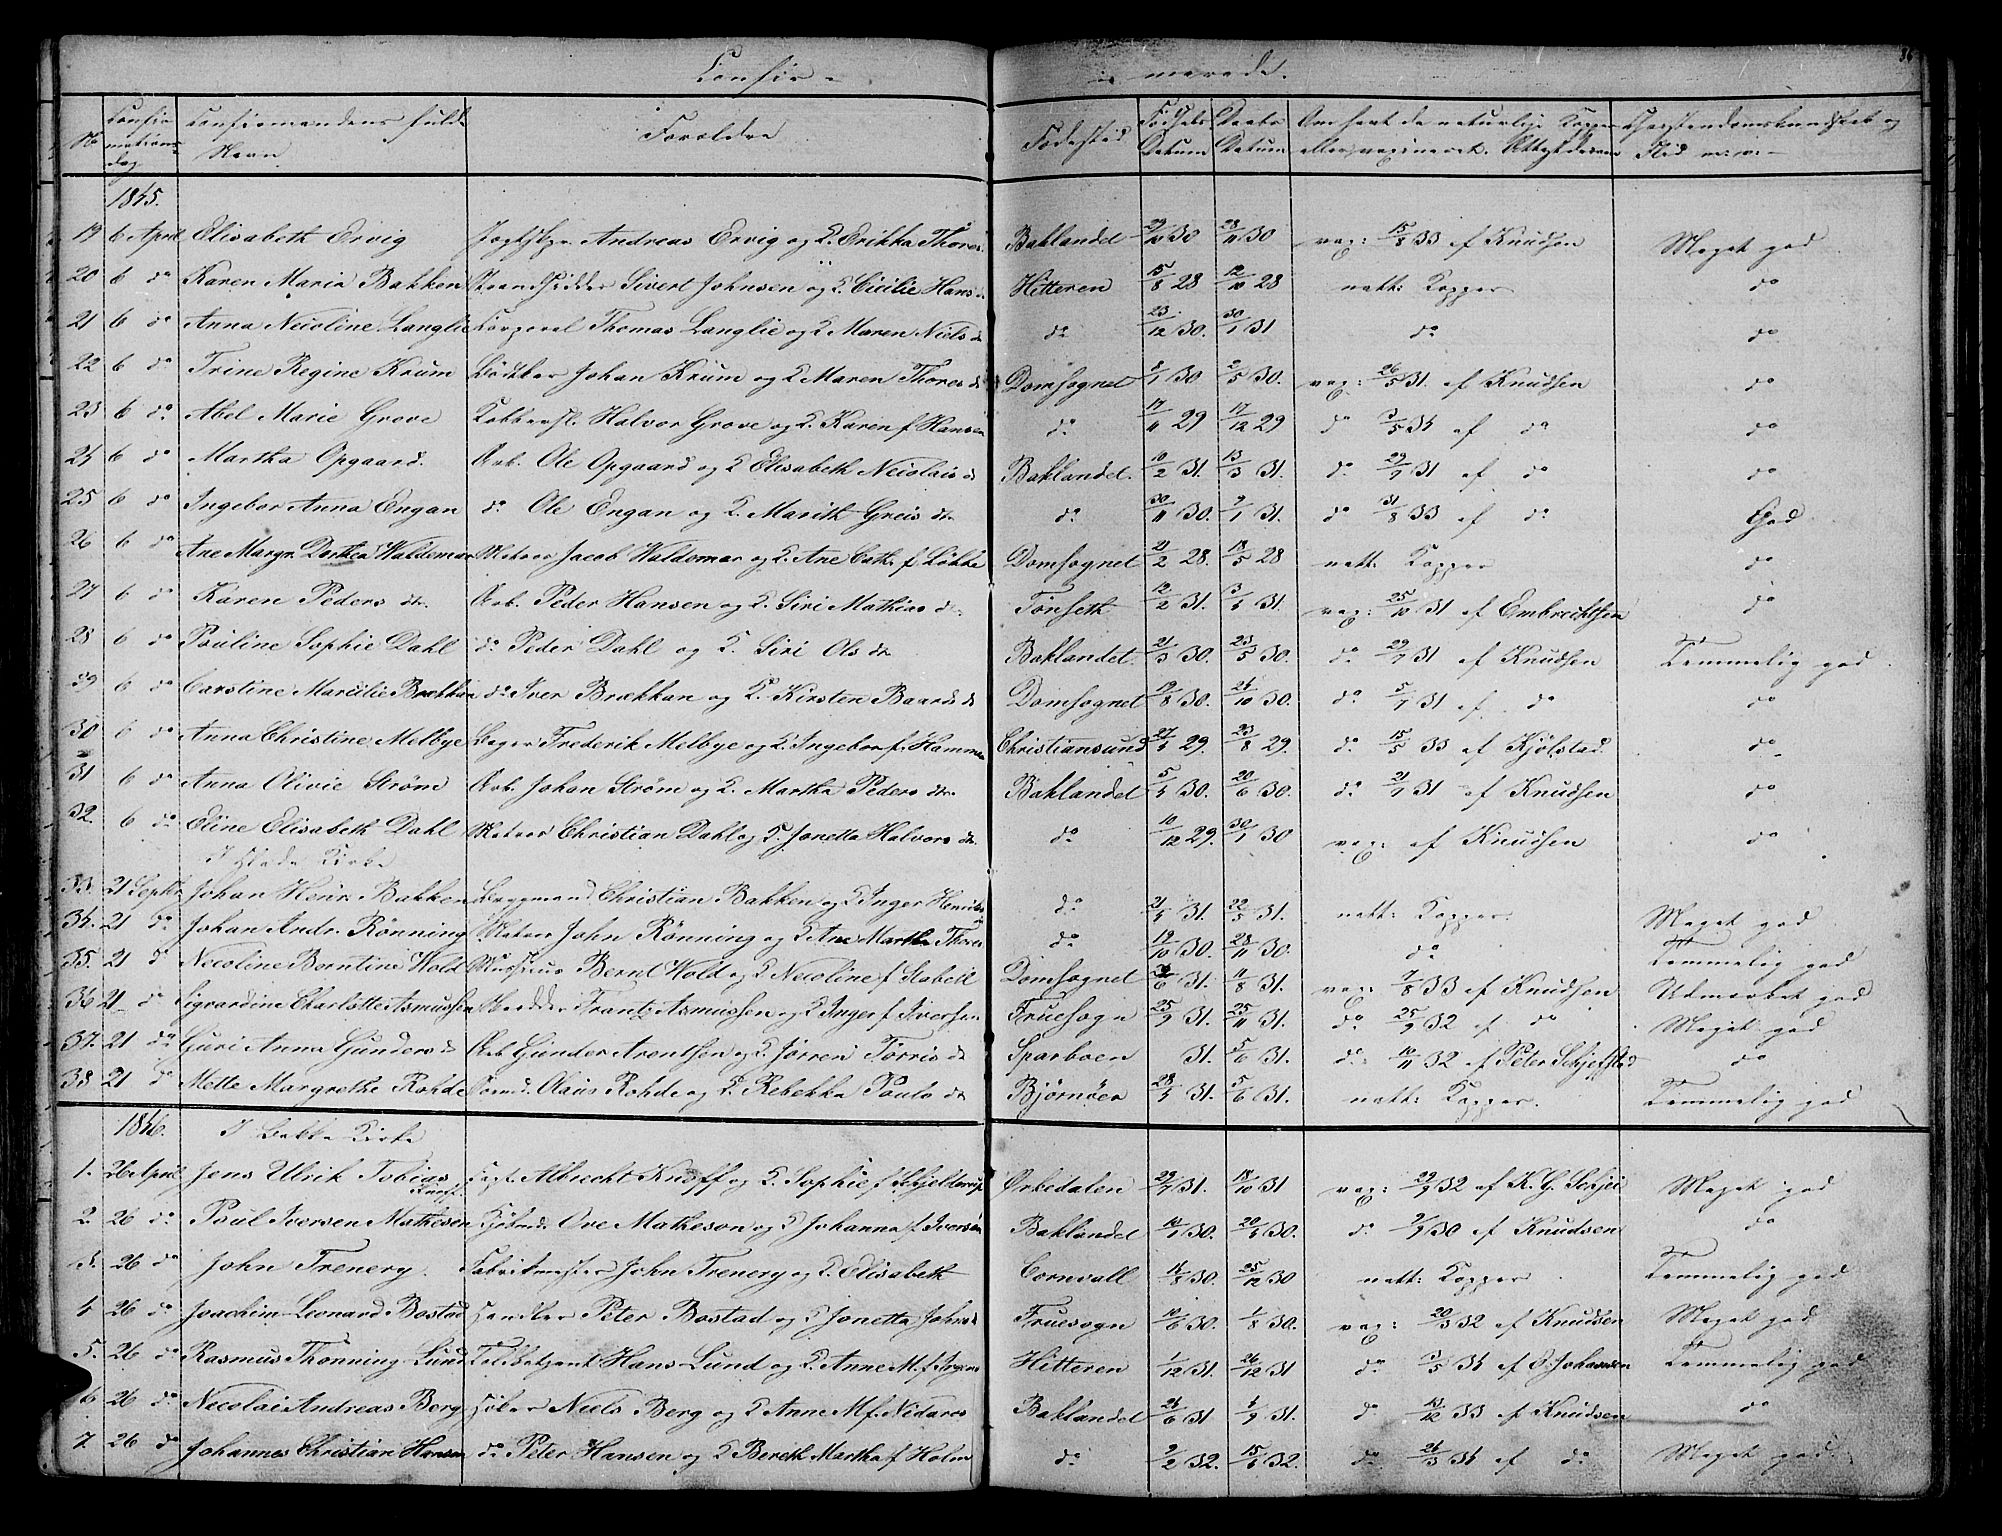 Confir- merede.
No Confirmations-dag Confirmandens fulde Navn Forældre Fødested Fødsels Datum Daabs Datum Om havt de naturlige Kopper eller vaxineret. Christendomskundskab og Flid m: v:
1845.
19 6 April Elisabeth Ervig Andreas Ervig og K. Erikka Thores Baklandet 29/10 30 28/11 30 vax: 15/8 33 af Knudsen Meget god
20 6 do Karen Maria Bakken Strandsidder Sivert Johnsen og K. Cicilie Hans d Hitteren 15/8 28 12/10 28 natt: Kopper do
21 6 do Anna Nicoline Langlie Corporal Thomas Langlie og K Maren Niels d do 23/12 30. 30/1 31 do do
22 6 do Trine Regine Krum Bødtker Johan Krum og K Maren Thores d Domsognet /1 30 2/5 30. vax: 26/5 31. af Knudsen do
23 6 do Abel Marie Grove Kobbersl. Halvor Grove og K. Karen f. Hansen do 17/11 29 17/12 29 do 3/5 34 af do do
24 6 do Martha Opgaard. Arb. Ole Opgaard og K Elisabeth Nicolais d Baklandet. 10/2 31. 13/3 31. do 29/9 31 af do do
25 6 do Ingebor Anna Engan do Ole Engan og K. Marith Greis dr. do 30/11 30. 9/1 31. do 31/8 33 af do God
26 6 do Ane Margr. Dorthea Waldemar Matros Jacob Waldemar og K. Ane Cath. f. Løkke Domsognet 21/2 28. 18/5 28 natt: Kopper do
27 6 do Karen Peders dr. Arb. Peder Hansen og K. Siri Mathias d. Tønseth 12/2 31. 13/ 31. vax: 25/10 31 af Embrechtsen do
28 6 do Pauline Sophie Dahl do Peder Dahl og K. Siri Ols dr. Baklandet. 21/3 30. 23/5 30. do 29/9 31 af Knudsen Temmelig god
29 6 do Carstine Marcelie Brækkan do Iver Brækkan og K. Kirsten Baards d Domsognet 19/8 30. 26/10 30. do 5/9 31 af do do
30 6 do Anna Christine Melbye Bager Frederik Melbye og K. Ingebor f. Hammer Christiansund 27/ 29. 23/8 29. do 15/5 33 af Kjølstad. do
31 6 do Anna Olivie Strøm Arb. Johan Strøm og K. Martha Peders dr. Baklandet 5/ 30. 20/6 30. do 21/9 31 af Knudsen do
32. 6 do Eline Elisabeth Dahl Matros Christian Dahl og K. Jonetta Halvors dr. do 10/12 29. 30/1 30 vax: af Knudsen do
I Lade Kirke
33. 21 Septbr Johan Henr. Bakken Christian Bakken og K Inger Henriks d do 21/ 31. 22/5 31. natt: Kopper. Meget god
34. 21 do Johan Andr. Rønning Matros John Rønning og K Ane Martha Thores do 19/10 30. 28/11 30. do Temmelig god
35. 21 d Nicoline Berntine Wold Musicus Bernt Wold og K Nicoline f. Stabell Domsognet /6 31. 11/8 31. vax: 7/8 33 af Knudsen Udmærket god
36 21 do Sigvardine Charlotte Asmussen Frantz Asmussen og K Inger f. Iversen Fruesogn 25/9 31. 25/11 31. do 25/9 32 af do Meget god
37. 21 do Guri Anna Gunders d Arb Gunder Arentsen og K. Jørren Torris d Sparboen 31. 5/6 31. do 10/11 32 af Peter Schjefstad do
38 21 do Mette Margrethe Rohde Formd. Claus Rohde og K. Rebekka Pauls d Bjørnøer 28/ 31. 5/6 31. natt: Kopper. Temmelig god
1846. I Bakke Kirke
1. 26 April Jens Ulrik Tobias Knoff Capt. Albrecht Knoff og K. Sophie f. Schjelderup Ørkedalen 29/7 31. 18/10 31 vax: 29/9 32 af K. G. Meget god
2. 26 do Paul Iversen Matheson Kjøbmd. Ove Matheson og K Johanna f. Iversen Baklandet 30. 20/ 30. do 9/9 30 af Knudsen do
3. 26 do John Trenery. Fabrikmester John Trenery og K. Elisabeth Cornvall /8 30. 25/12 30 natt: Kopper Temmelig god
4 26 do Joachim Leonard Bostad Handler Peter Bostad og K Jonetta Johns d Fruesogn 10/6 30. 1/8 30. vax: 20/3 32 af Knudsen Meget god
5. 26 do Rasmus Thonning Lund Toldbetjent Hans Lund og K Anne M. f. Hitteren 1/12 31. 26/12 31 do 3/5 34 af O. Johansen Temmelig god
6 26 do Nicolai Andreas Berg Niels Berg og K Anne M. f. Nidaros Baklandet 24/6 31 /9 31. do 13/12 33 af Knudsen do
7. 26 do Johannes Christian Hansen do Peter Hansen og K Bereth Martha f Holm do 9/2 32. 15/ 32. do 26/3 34 af do. Meget god